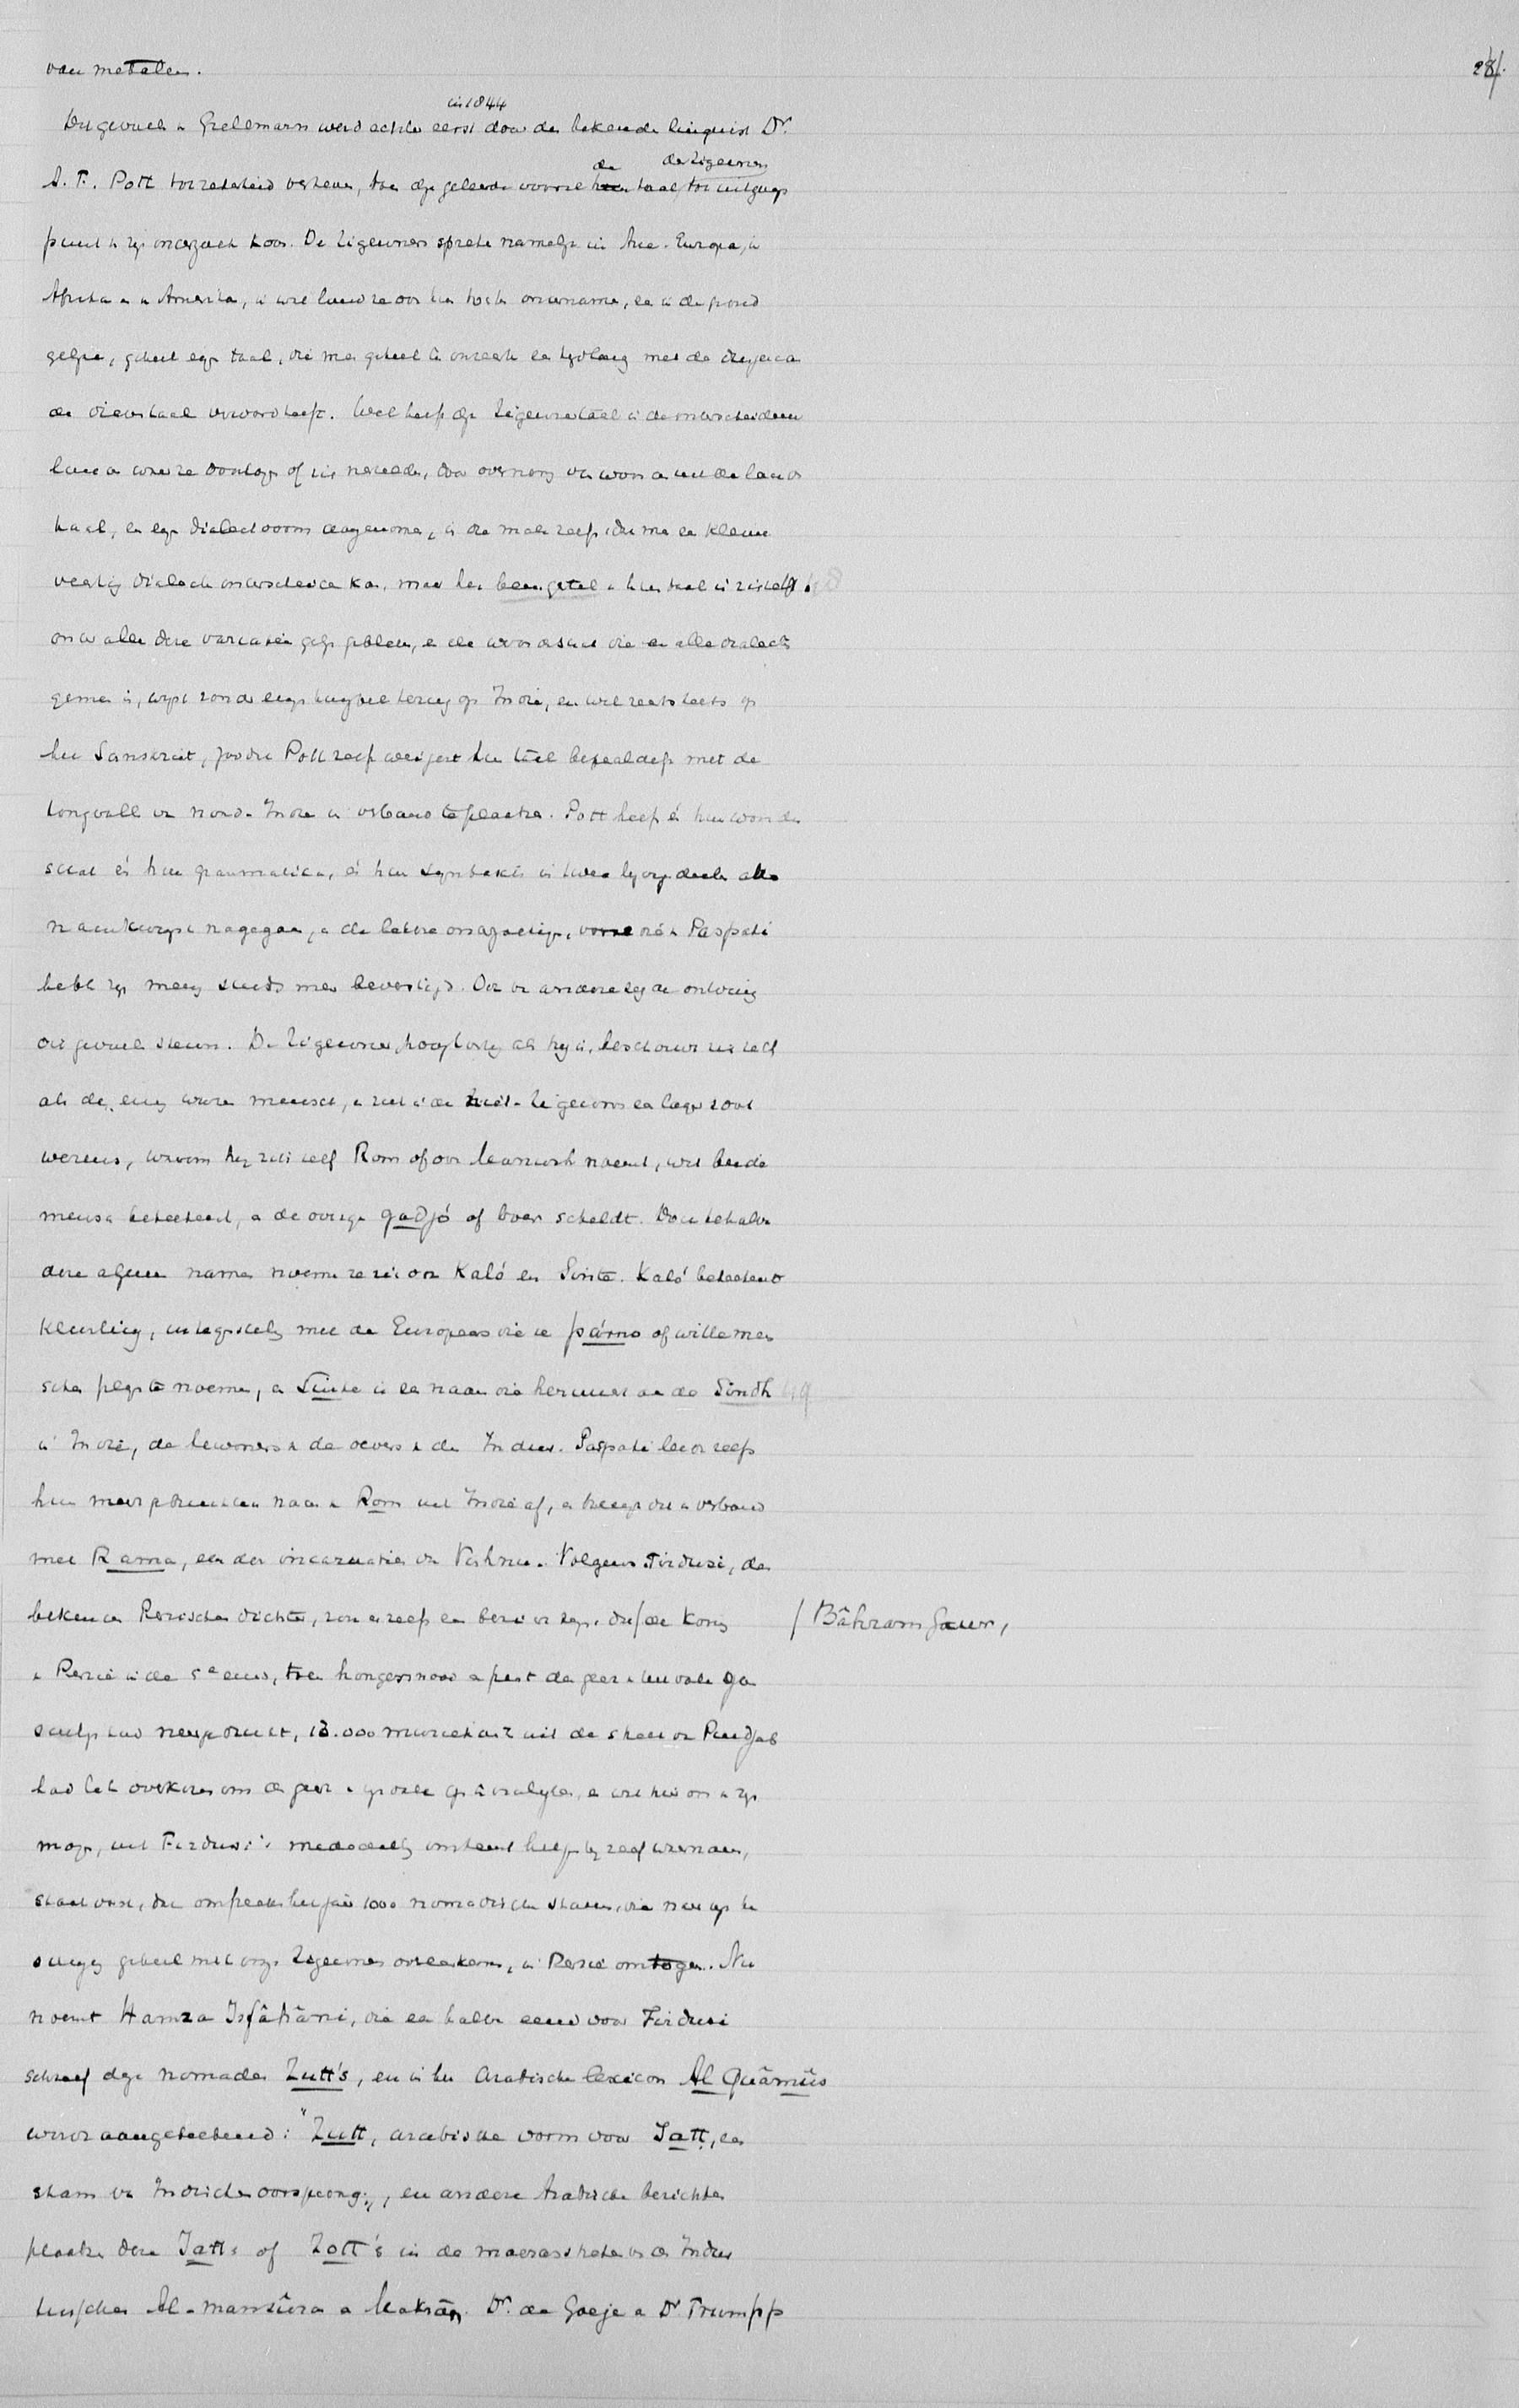 van metalen. 28/.
in 1844
Dit gevoelen v Grellmann werd echter eerst door den bekende linguist Dr.
de der Zigeuners
A. F. Pott tot zekerheid verheven, toen deze geleerde vooral hun taal tot uitgangs
punt v zijn onderzoek koos. De Zigeuners spreken namelijk in Azie, Europa, in
Afrika en in Amerika, in welk land ze ook hun tochten ondernamen, een in de grond
gelijke, geheel eigen taal, die men geheel ten onrechte een tijdlang met de
de dieventaal verward heeft. Wel heeft deze Zigeunertaal in de onderscheiden
landen waar ze doortogen of zich nederzetten, door overneming van woorden uit de lands
taal, een eigen dialectvorm aangenomen, in die mate zelfs dat men een kleine
veertig dialecten onderscheiden kan, maar het beengestel v hun taal is zichzelf
onder alle deze variatien gelijk gebleven, en de woordenschat die in alle dialecten
gemeen is, wijst zonder enige twijfel terug op Indië, en wel rechtstreeks op
het Sanskriet, zoodat Pott zelfs weigert hun taal bepaaldelijk met de
tongvallen van Noord-Indie in verband te plaatsen. Pott heeft èn hun woorden
schat èn hun grammatica, èn hun syntaxis in twee lijvige deelen aller
nauwkeurigst nagegaan, en de latere onderzoekingen, vooral die v Paspati
hebben zijn mening steeds meer bevestigd. Ook van andere zijde ontving
dit gevoelen steun. De Zigeuner, hooghartig als hij is, beschouwt zich zelf
als de enig ware mensch, en ziet in de niet-Zigeuners een lager soort
wezens, waarom hij zich zelf Rom of ook Manusch noemt, wat beide
mensch beteekent, en de overige gadjó of boer scheldt. Doch behalve
deze algemeene namen noemen ze zich ook Kaló en Sinte. Kaló beteekent
kleurling, in tegenstelling met de Europeanen die ze párno of witte men
schen plegen te noemen, en Sinte is een naam die herinnert aan de Sindh
in Indië, de bewoners v de oevers v den Indus. Paspati leidt zelfs
hun meer gebruikelijken naam v Rom uit Indië af, en brengt die in verband
met Rama, een der incarnaties van Vishnu. Volgens Firdusi, den
bekenden Perzischen dichter, zou er zelfs een bericht zijn, dat de koning / Bâhram Gaur,
v Perzië in de 5e eeuw, toen hongersnood en pest de geest v
had neergedrukt, 12.000 muzikanten uit de streek van Pundjab
had laten overkomen om de geest v zijn volk op te vroolijken, en wat hier ook v zij
moge, uit Firdusi's mededeeling omtrent hetgeen hij zelf waarnam,
staat vast, dat omstreeks het jaar 1000 nomadische stammen, die
geheel met onze Zigeuners overeenkomen, in Perzië omtogen. Nu
noemt Hamza Isfâhâni, die een halve eeuw voor Firdusi
schreef deze nomaden Zutt's, en in het Arabische lexicon Al Quâmûs
wordt aangeteekend: "Zutt, arabische vorm voor Jatt, een
stam van Indischen oorsprong", en andere Arabische berichten
plaatsen deze Jatt's of Zott's in de moerasstreken van den Indus
tusschen Al-mansûra en Makrân. Dr. de Goeje en Dr Trumpp